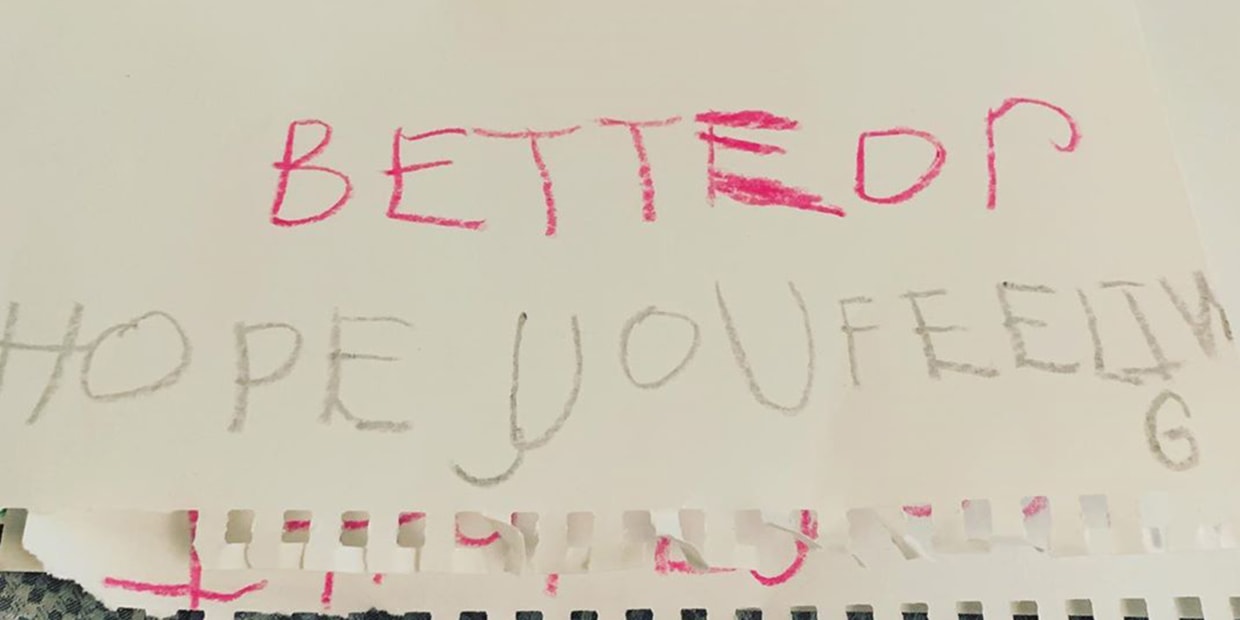 BETTEOr
HOPE yOU FEELIN
G